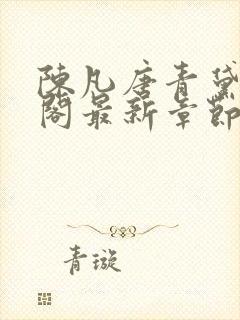 陳凡唐青黛
閣最新章節
青璇